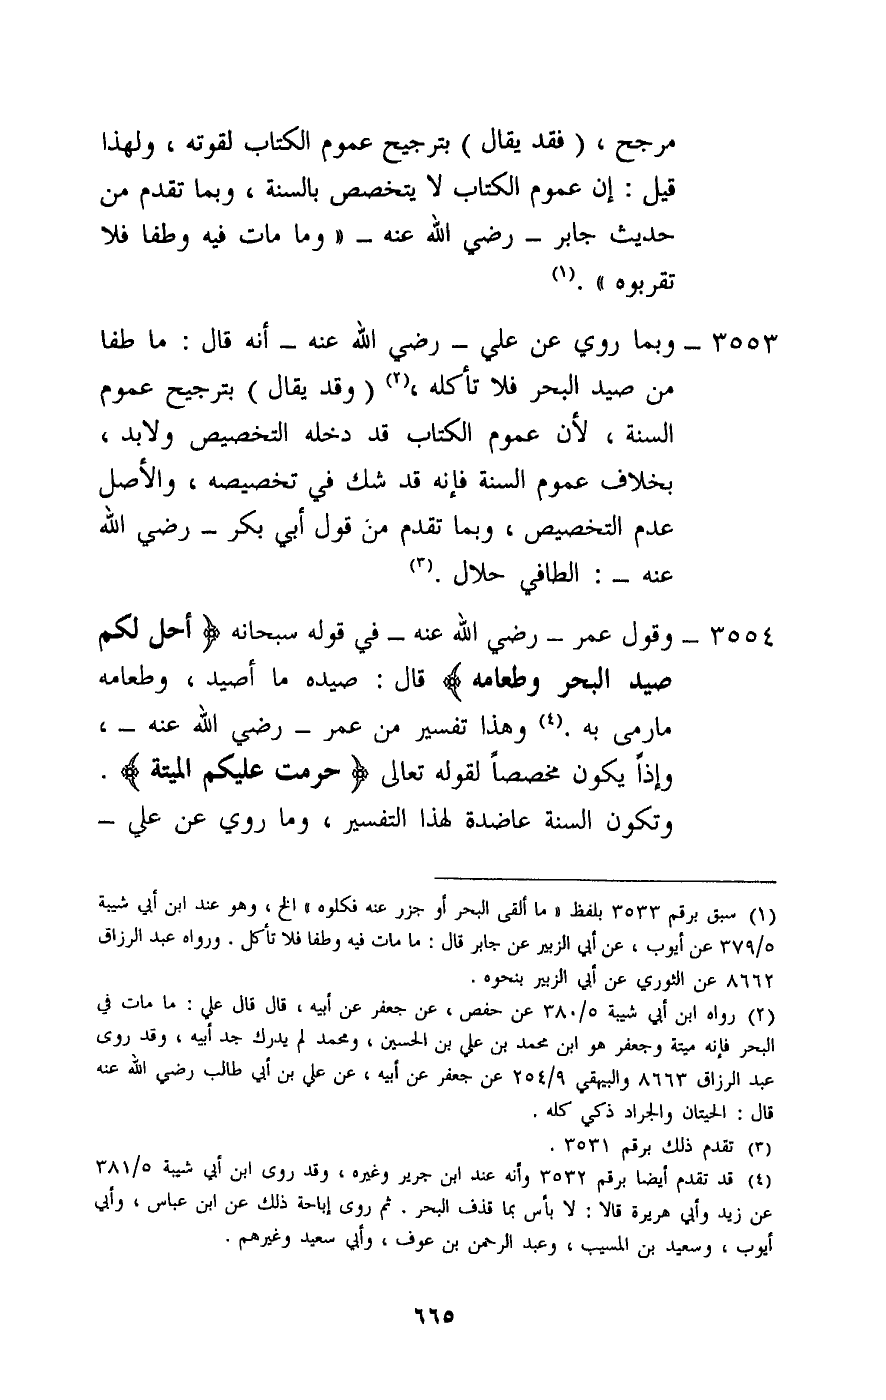 مرجح ، ( فقد يقال ) بترجيح عموم الكتاب لقوته ، ولهذا
قيل : إن عموم الكتاب لا يتخصص بالسنة ، وبما تقدم من
حديث جابر – رضي الله عنه – « وما مات فيه وطفا فلا
تقربوه » .(١)
٣٥٥٣ – وبما روي عن علي – رضي الله عنه – أنه قال : ما طفا
من صيد البحر فلا تأكله ،(٢) ( وقد يقال ) بترجيح عموم
السنة ، لأن عموم الكتاب قد دخله التخصيص ولابد ،
بخلاف عموم السنة فإنه قد شك في تخصيصه ، والأصل
عدم التخصيص ، وبما تقدم من قول أبي بكر – رضي الله
عنه – : الطافي حلال .(٣)
٣٥٥٤ – وقول عمر – رضي الله عنه – في قوله سبحانه ﴿ أحل لكم
صيد البحر وطعامه ﴾ قال : صيده ما أصيد ، وطعامه
مارمى به .(٤) وهذا تفسير من عمر – رضي الله عنه – ،
وإذاً يكون مخصصاً لقوله تعالى ﴿ حرمت عليكم الميتة ﴾ .
وتكون السنة عاضدة لهذا التفسير ، وما روي عن علي –
(١) سبق برقم ٣٥٣٣ بلفظ « ما ألقى البحر أو جزر عنه فكلوه » الخ ، وهو عند ابن أبي شيبة
٣٧٩/٥ عن أيوب ، عن أبي الزبير عن جابر قال : ما مات فيه وطفا فلا تأكل . ورواه عبد الرزاق
٨٦٦٢ عن الثوري عن أبي الزبير بنحوه .
(٢) رواه ابن أبي شيبة ٣٨٠/٥ عن حفص ، عن جعفر عن أبيه ، قال قال علي : ما مات في
البحر فإنه ميتة وجعفر هو ابن محمد بن علي بن الحسين ، ومحمد لم يدرك جد أبيه ، وقد روى
عبد الرزاق ٨٦٦٣ والبيهقي ٢٥٤/٩ عن جعفر عن أبيه ، عن علي بن أبي طالب رضي الله عنه
قال : الحيتان والجراد ذكي كله .
(٣) تقدم ذلك برقم ٣٥٣١ .
(٤) قد تقدم أيضا برقم ٣٥٣٢ وأنه عند ابن جرير وغيره ، وقد روى ابن أبي شيبة ٣٨١/٥
عن زيد وأبي هريرة قالا : لا بأس بما قذف البحر . ثم روى إباحة ذلك عن ابن عباس ، وأبي
أيوب ، وسعيد بن المسيب ، وعبد الرحمن بن عوف ، وأبي سعيد وغيرهم .
٦٦٥